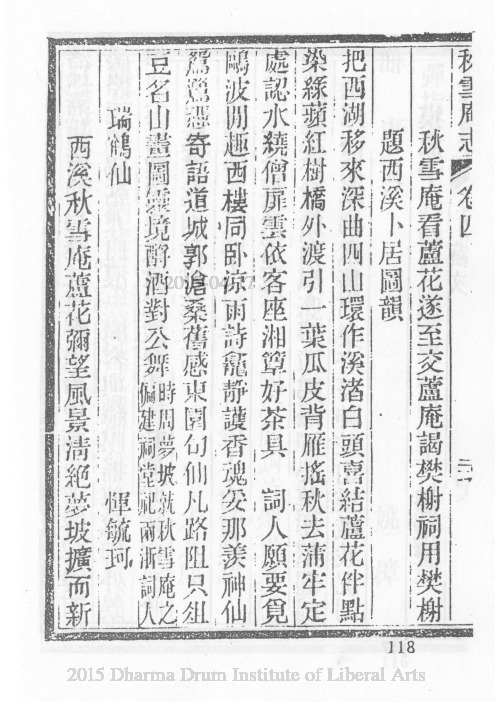 秋雪庵志 卷四
秋雪庵看蘆花遂至交蘆庵謁樊榭祠用樊榭
題西溪卜居圖韻
把西湖移來深曲四山環作溪渚白頭喜結蘆花伴點
染綠蘋紅樹橋外渡引一葉瓜皮背雁搖秋去蒲牢定
處認水繞僧扉雲依客座湘簟好茶具 詞人願要覓
鷗波閒趣西樓同卧涼雨詩龕靜護香魂妥那羡神仙
鴛鷺憑寄語道城郭滄桑舊感東園句仙凡路阻只俎
豆名山畫圖靈境酹酒對公舞時周夢坡就秋雪庵之
偏建祠堂祀兩浙詞人
瑞鶴仙 惲毓珂
西溪秋雪庵蘆花彌望風景清絕夢坡擴而新
118
2015 Dharma Drum Institute of Liberal Arts